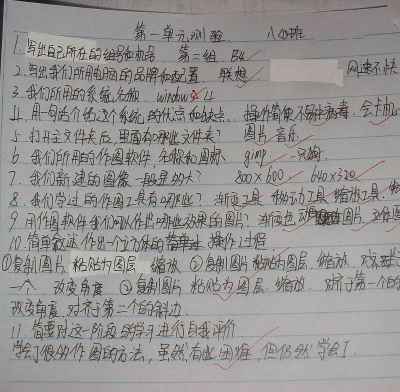 第一单元测验 八(4)班
1. 写出自己所在的组号和机号 第二组 B4
2. 写出我们所用电脑的品牌和配置 联想 网速不快
3. 我们所用的系统名称 windows
4. 用一句话介绍这个系统的优点和缺点 操作简便 不易中病毒 会卡机
5. 打开主文件夹后,里面有哪些文件夹? 图片 音乐
6. 我们所用的作图软件名称和图标 gimp 一只狗
7. 我们新建的图像一般是多大? 800×600 640×320
8. 我们学过的作图工具有哪些? 渐变工具 移动工具 缩放工具
9. 用作图软件我们可以作出哪些效果的图片? 渐变色 图片 立体图
10. 简单叙述作出一个立方体的操作过程
①复制图片 粘贴为图层 缩放 ②复制图片 粘贴为图层 缩放 对齐
一个 改变角度 ③复制图片 粘贴为图层 缩放 对齐第一个的
改变角度 对齐第二个的斜边
11. 简要对这一阶段的学习进行自我评价
学会了很多作图的方法,虽然有些困难,但仍然学会了